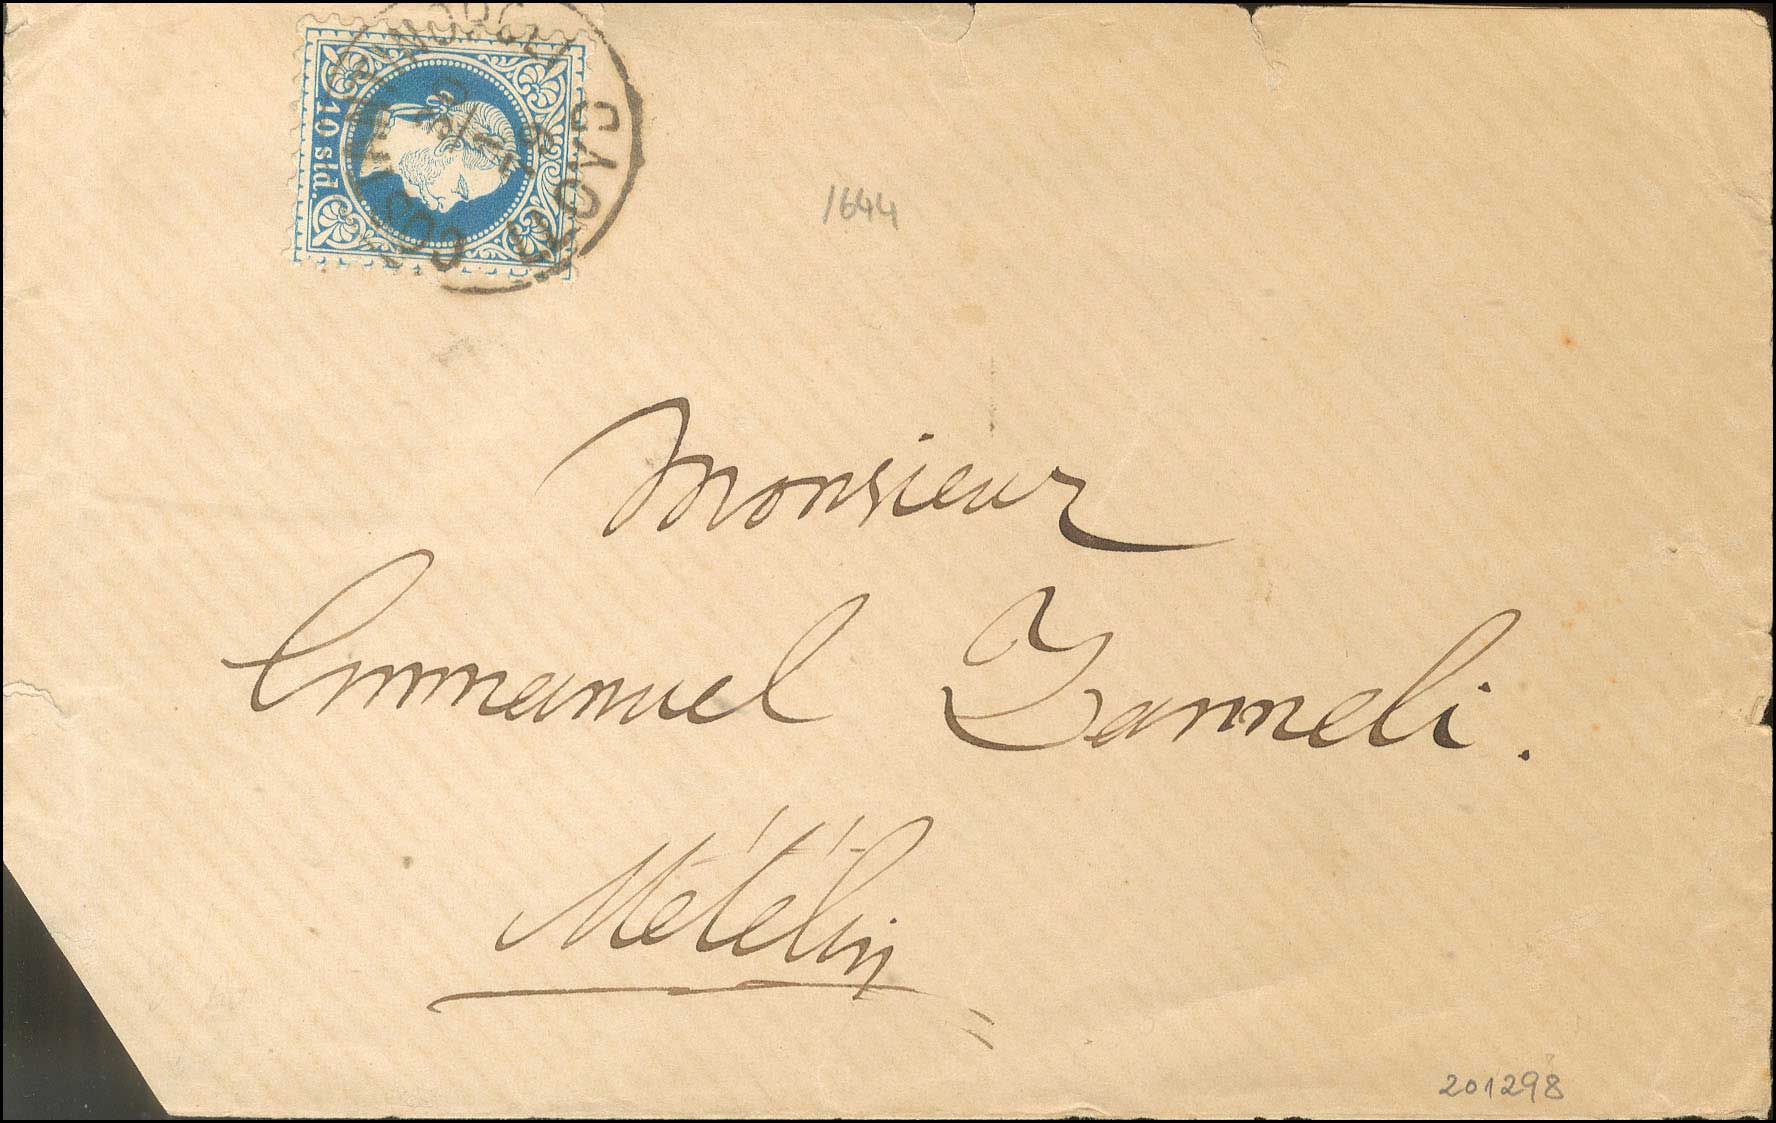 10 sld.
1644
Monsieur
Emmanuel Zanneli.
Métélin
201298